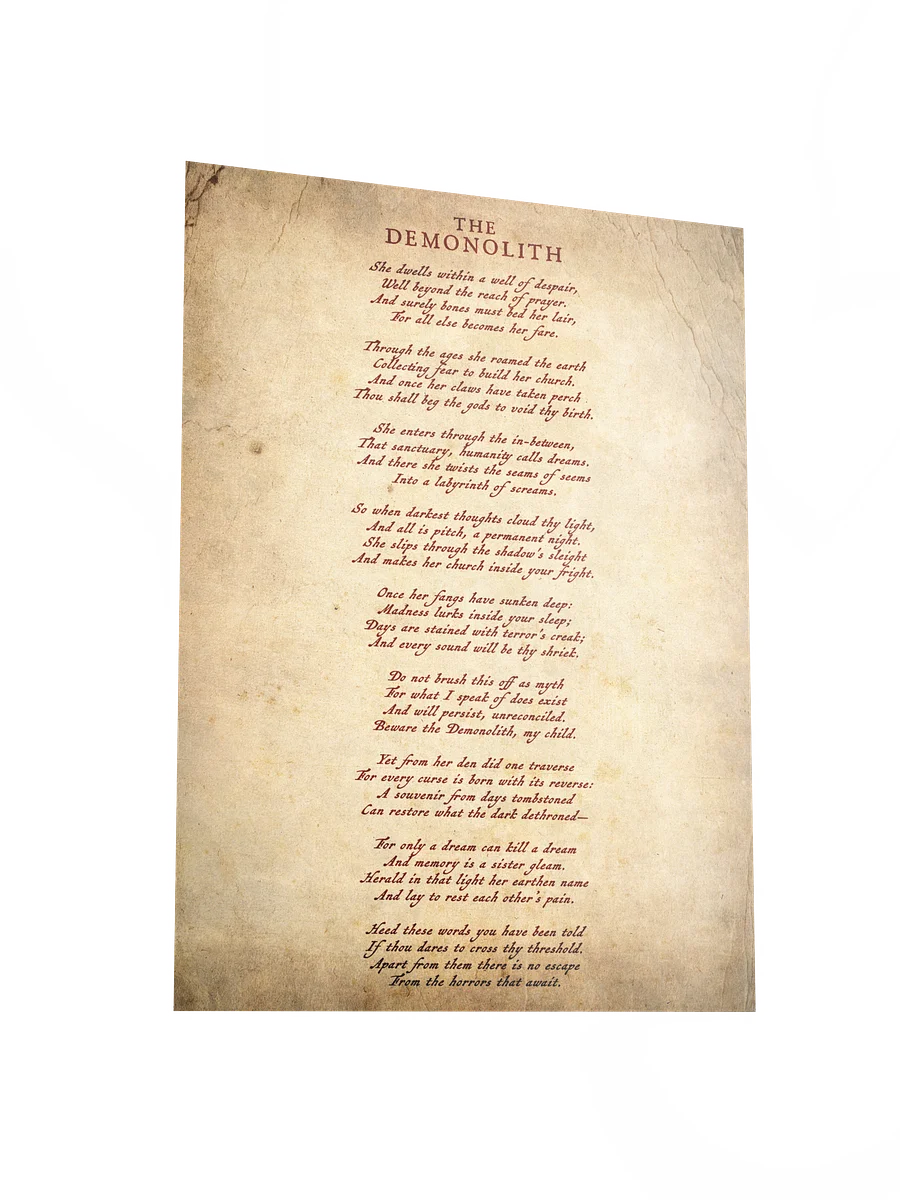 THE
DEMONOLITH
She dwells within a well of despair,
Well beyond the reach of prayer.
And surely bones must bed her lair,
For all else becomes her fare.
Through the ages she roamed the earth
Collecting fear to build her church.
And once her claws have taken perch
Thou shall beg the gods to void thy birth.
She enters through the in-between,
That sanctuary, humanity calls dreams.
And there she twists the seams of seems
Into a labyrinth of screams.
So when darkest thoughts cloud thy light,
And all is pitch, a permanent night.
She slips through the shadow's sleight
And makes her church inside your fright.
Once her fangs have sunken deep:
Madness lurks inside your sleep;
Days are stained with terror's creak;
And every sound will be thy shriek.
Do not brush this off as myth
For what I speak of does exist
And will persist, unreconciled.
Beware the Demonolith, my child.
Yet from her den did one traverse
For every curse is born with its reverse:
A souvenir from days tombstoned
Can restore what the dark dethroned—
For only a dream can kill a dream
And memory is a sister gleam.
Herald in that light her earthen name
And lay to rest each other's pain.
Heed these words you have been told
If thou dares to cross thy threshold.
Apart from them there is no escape
From the horrors that await.